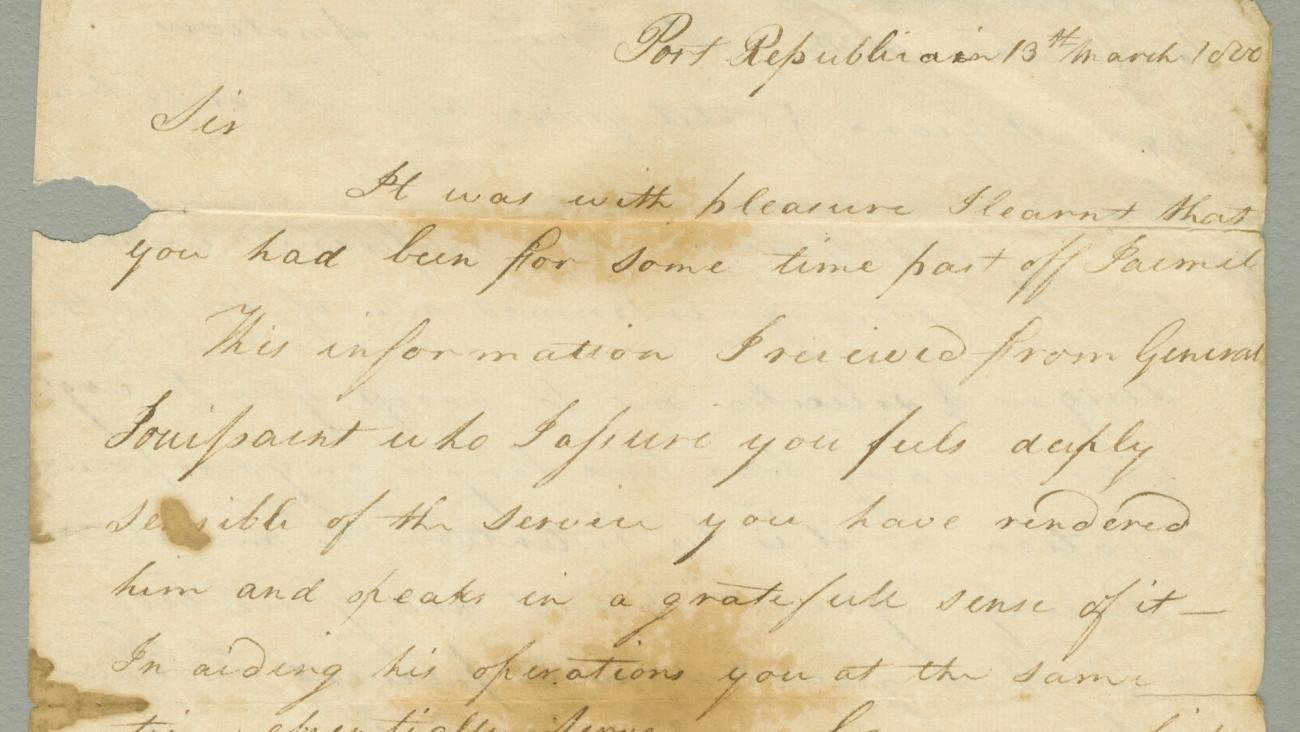 Port Republicain 13th March 1800
Sir
It was with pleasure I learnt that
you had been for some time past off Jacmel
This information I received from General
Touissaint who I assure you feels deeply
sensible of the service you have rendered
him and speaks in a gratefull sense of it —
In aiding his operations you at the same
essentially serve